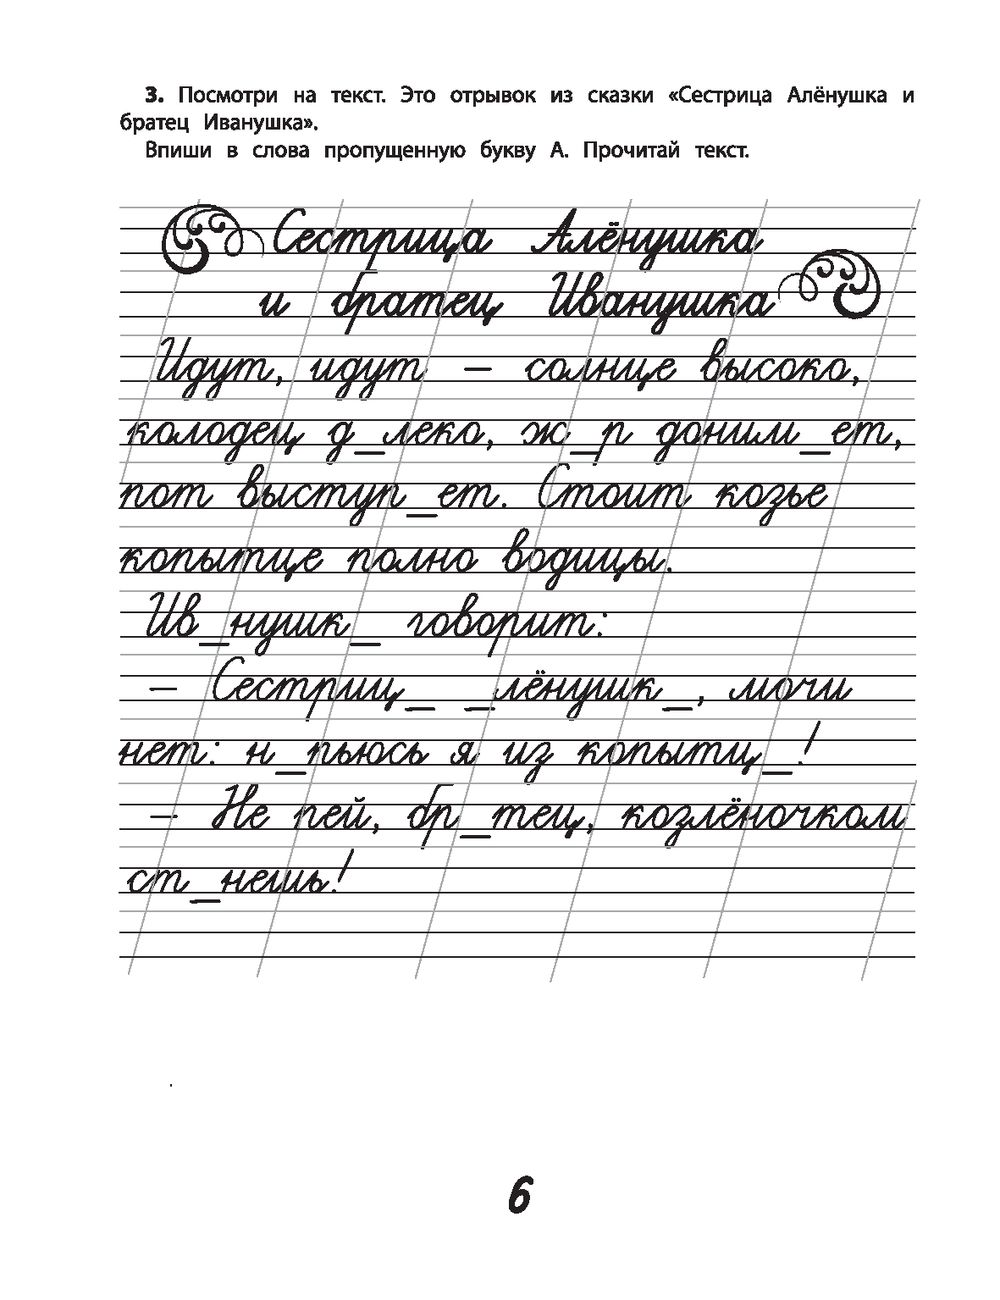 3. Посмотри на текст. Это отрывок из сказки «Сестрица Алёнушка и
братец Иванушка».
Впиши в слова пропущенную букву А. Прочитай текст.
Сестрица Алёнушка
и братец Иванушка
Идут, идут – солнце высоко,
колодец д_леко, ж_р доним_ет,
пот выступ_ет. Стоит козье
копытце полно водицы.
Ив_нушк_ говорит:
– Сестриц_ _лёнушк_, мочи
нет: н_пьюсь я из копытц_!
– Не пей, бр_тец, козлёночком
ст_нешь!
6